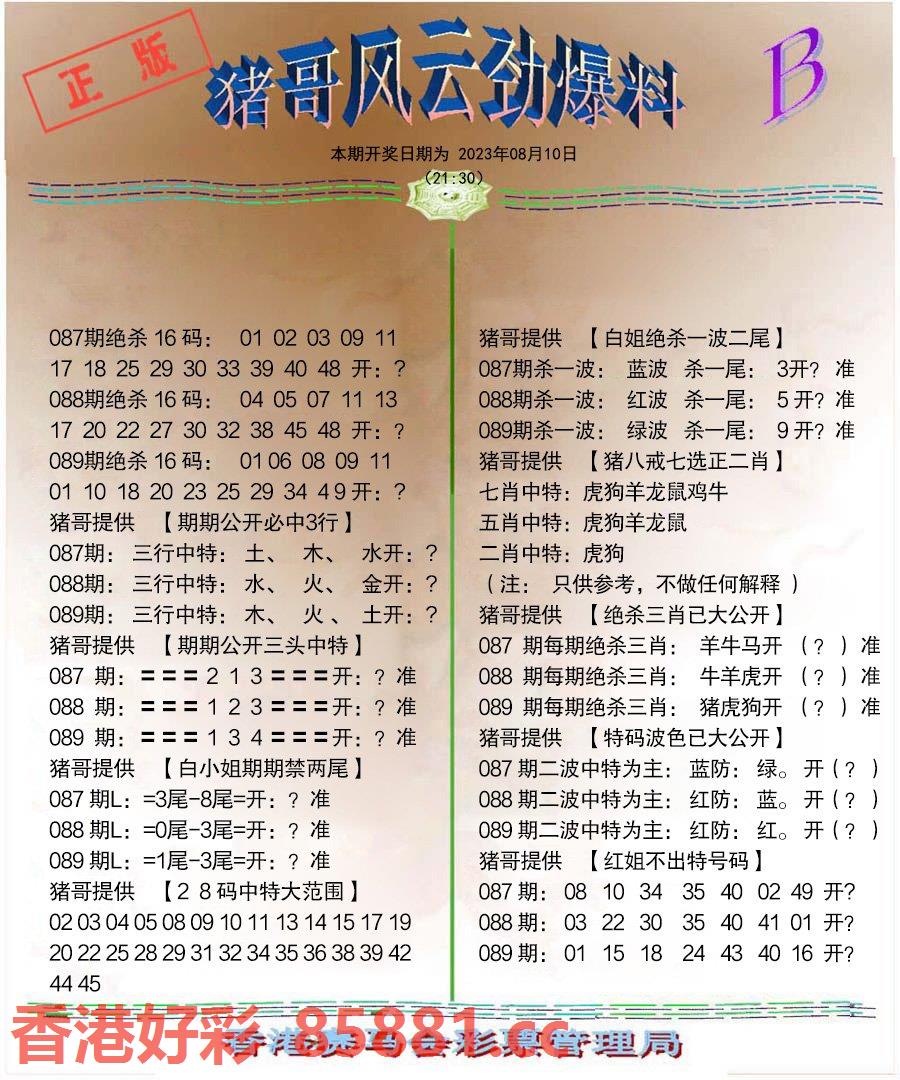 正版
猪哥风云劲爆料
B
本期开奖日期为 2023年08月10日
(21:30)
087期绝杀 16 码： 01 02 03 09 11
17 18 25 29 30 33 39 40 48 开：？
088期绝杀 16 码： 04 05 07 11 13
17 20 22 27 30 32 38 45 48 开：？
089期绝杀 16 码： 01 06 08 09 11
01 10 18 20 23 25 29 34 4 9 开：？
猪哥提供 【期期公开必中3行】
087期： 三行中特： 土、 木、 水开：？
088期： 三行中特： 水、 火、 金开：？
089期： 三行中特： 木、 火、 土开：？
猪哥提供 【期期公开三头中特】
087 期：＝＝＝２１３＝＝＝开：？准
088 期：＝＝＝１２３＝＝＝开：？准
089 期：＝＝＝１３４＝＝＝开：？准
猪哥提供 【白小姐期期禁两尾】
087 期L：=3尾-8尾=开：？准
088 期L：=0尾-3尾=开：？准
089 期L：=1尾-3尾=开：？准
猪哥提供 【２８码中特大范围】
02 03 04 05 08 09 10 11 13 14 15 17 19
20 22 25 28 29 31 32 34 35 36 38 39 42
44 45
猪哥提供 【白姐绝杀一波二尾】
087期杀一波： 蓝波 杀一尾： 3开？准
088期杀一波： 红波 杀一尾： 5 开？准
089期杀一波： 绿波 杀一尾： 9 开？准
猪哥提供 【猪八戒七选正二肖】
七肖中特：虎狗羊龙鼠鸡牛
五肖中特：虎狗羊龙鼠
二肖中特：虎狗
（注： 只供参考，不做任何解释 ）
猪哥提供 【绝杀三肖已大公开】
087 期每期绝杀三肖： 羊牛马开 （？）准
088 期每期绝杀三肖： 牛羊虎开 （？）准
089 期每期绝杀三肖： 猪虎狗开 （？）准
猪哥提供 【特码波色已大公开】
087 期二波中特为主：蓝防：绿。开（？）
088 期二波中特为主：红防：蓝。开（？）
089 期二波中特为主：红防：红。开（？）
猪哥提供 【红姐不出特号码】
087 期： 08 10 34 35 40 02 49 开?
088 期： 03 22 30 35 40 41 01 开?
089 期： 01 15 18 24 43 40 16 开?
香港好彩 85881.cc
香港赛马会彩票管理局